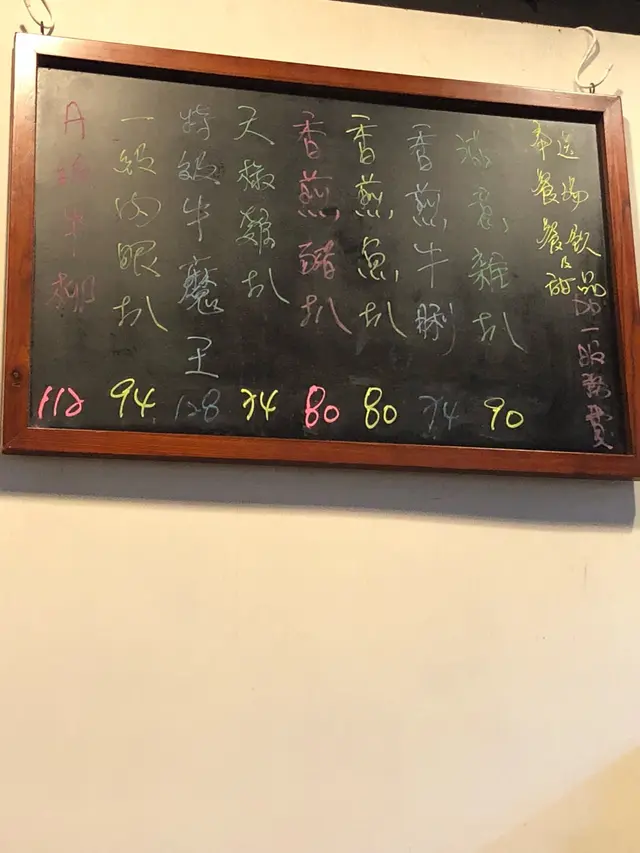 奉送
餐湯
餐飲
及
甜品
加一服務費
雜扒
90
香煎牛脷
74
香煎魚扒
80
香煎豬扒
80
天椒雞扒
74
特級牛魔王
128
一級肉眼扒
94
A級牛柳
112